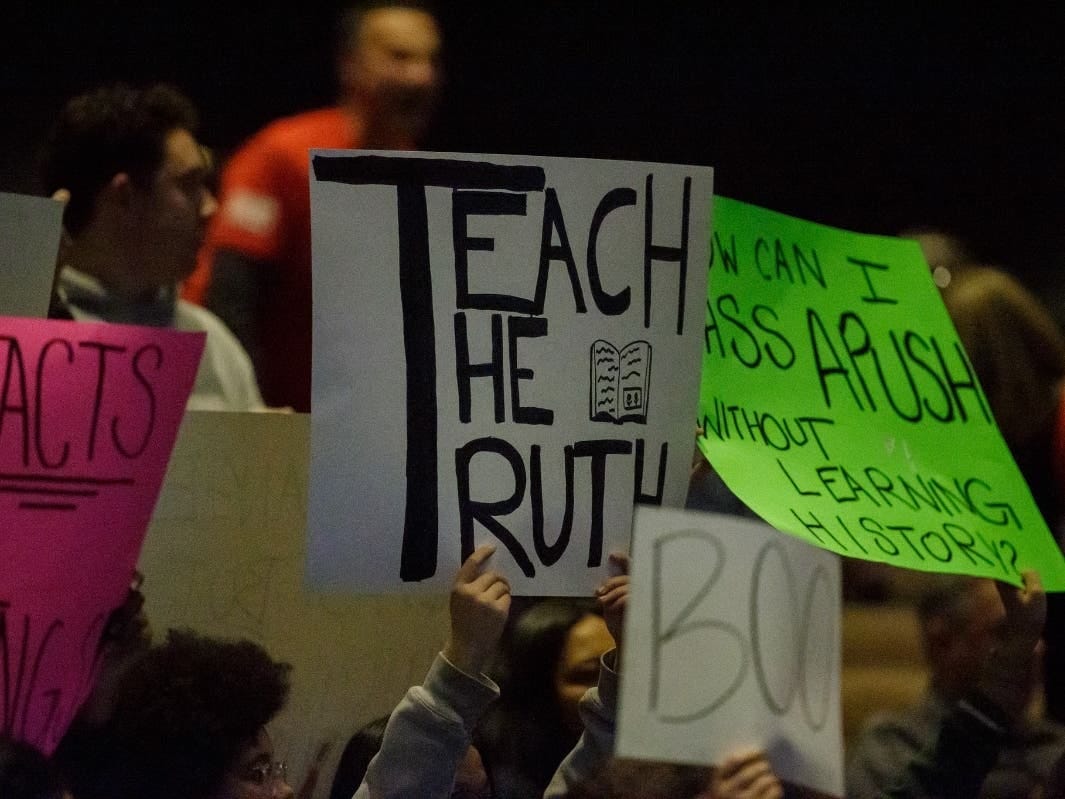 TEACH
THE
TRUTH
OW CAN I
ASS APUSH
WITHOUT
LEARNING
HISTORY?
BOO
ACTS